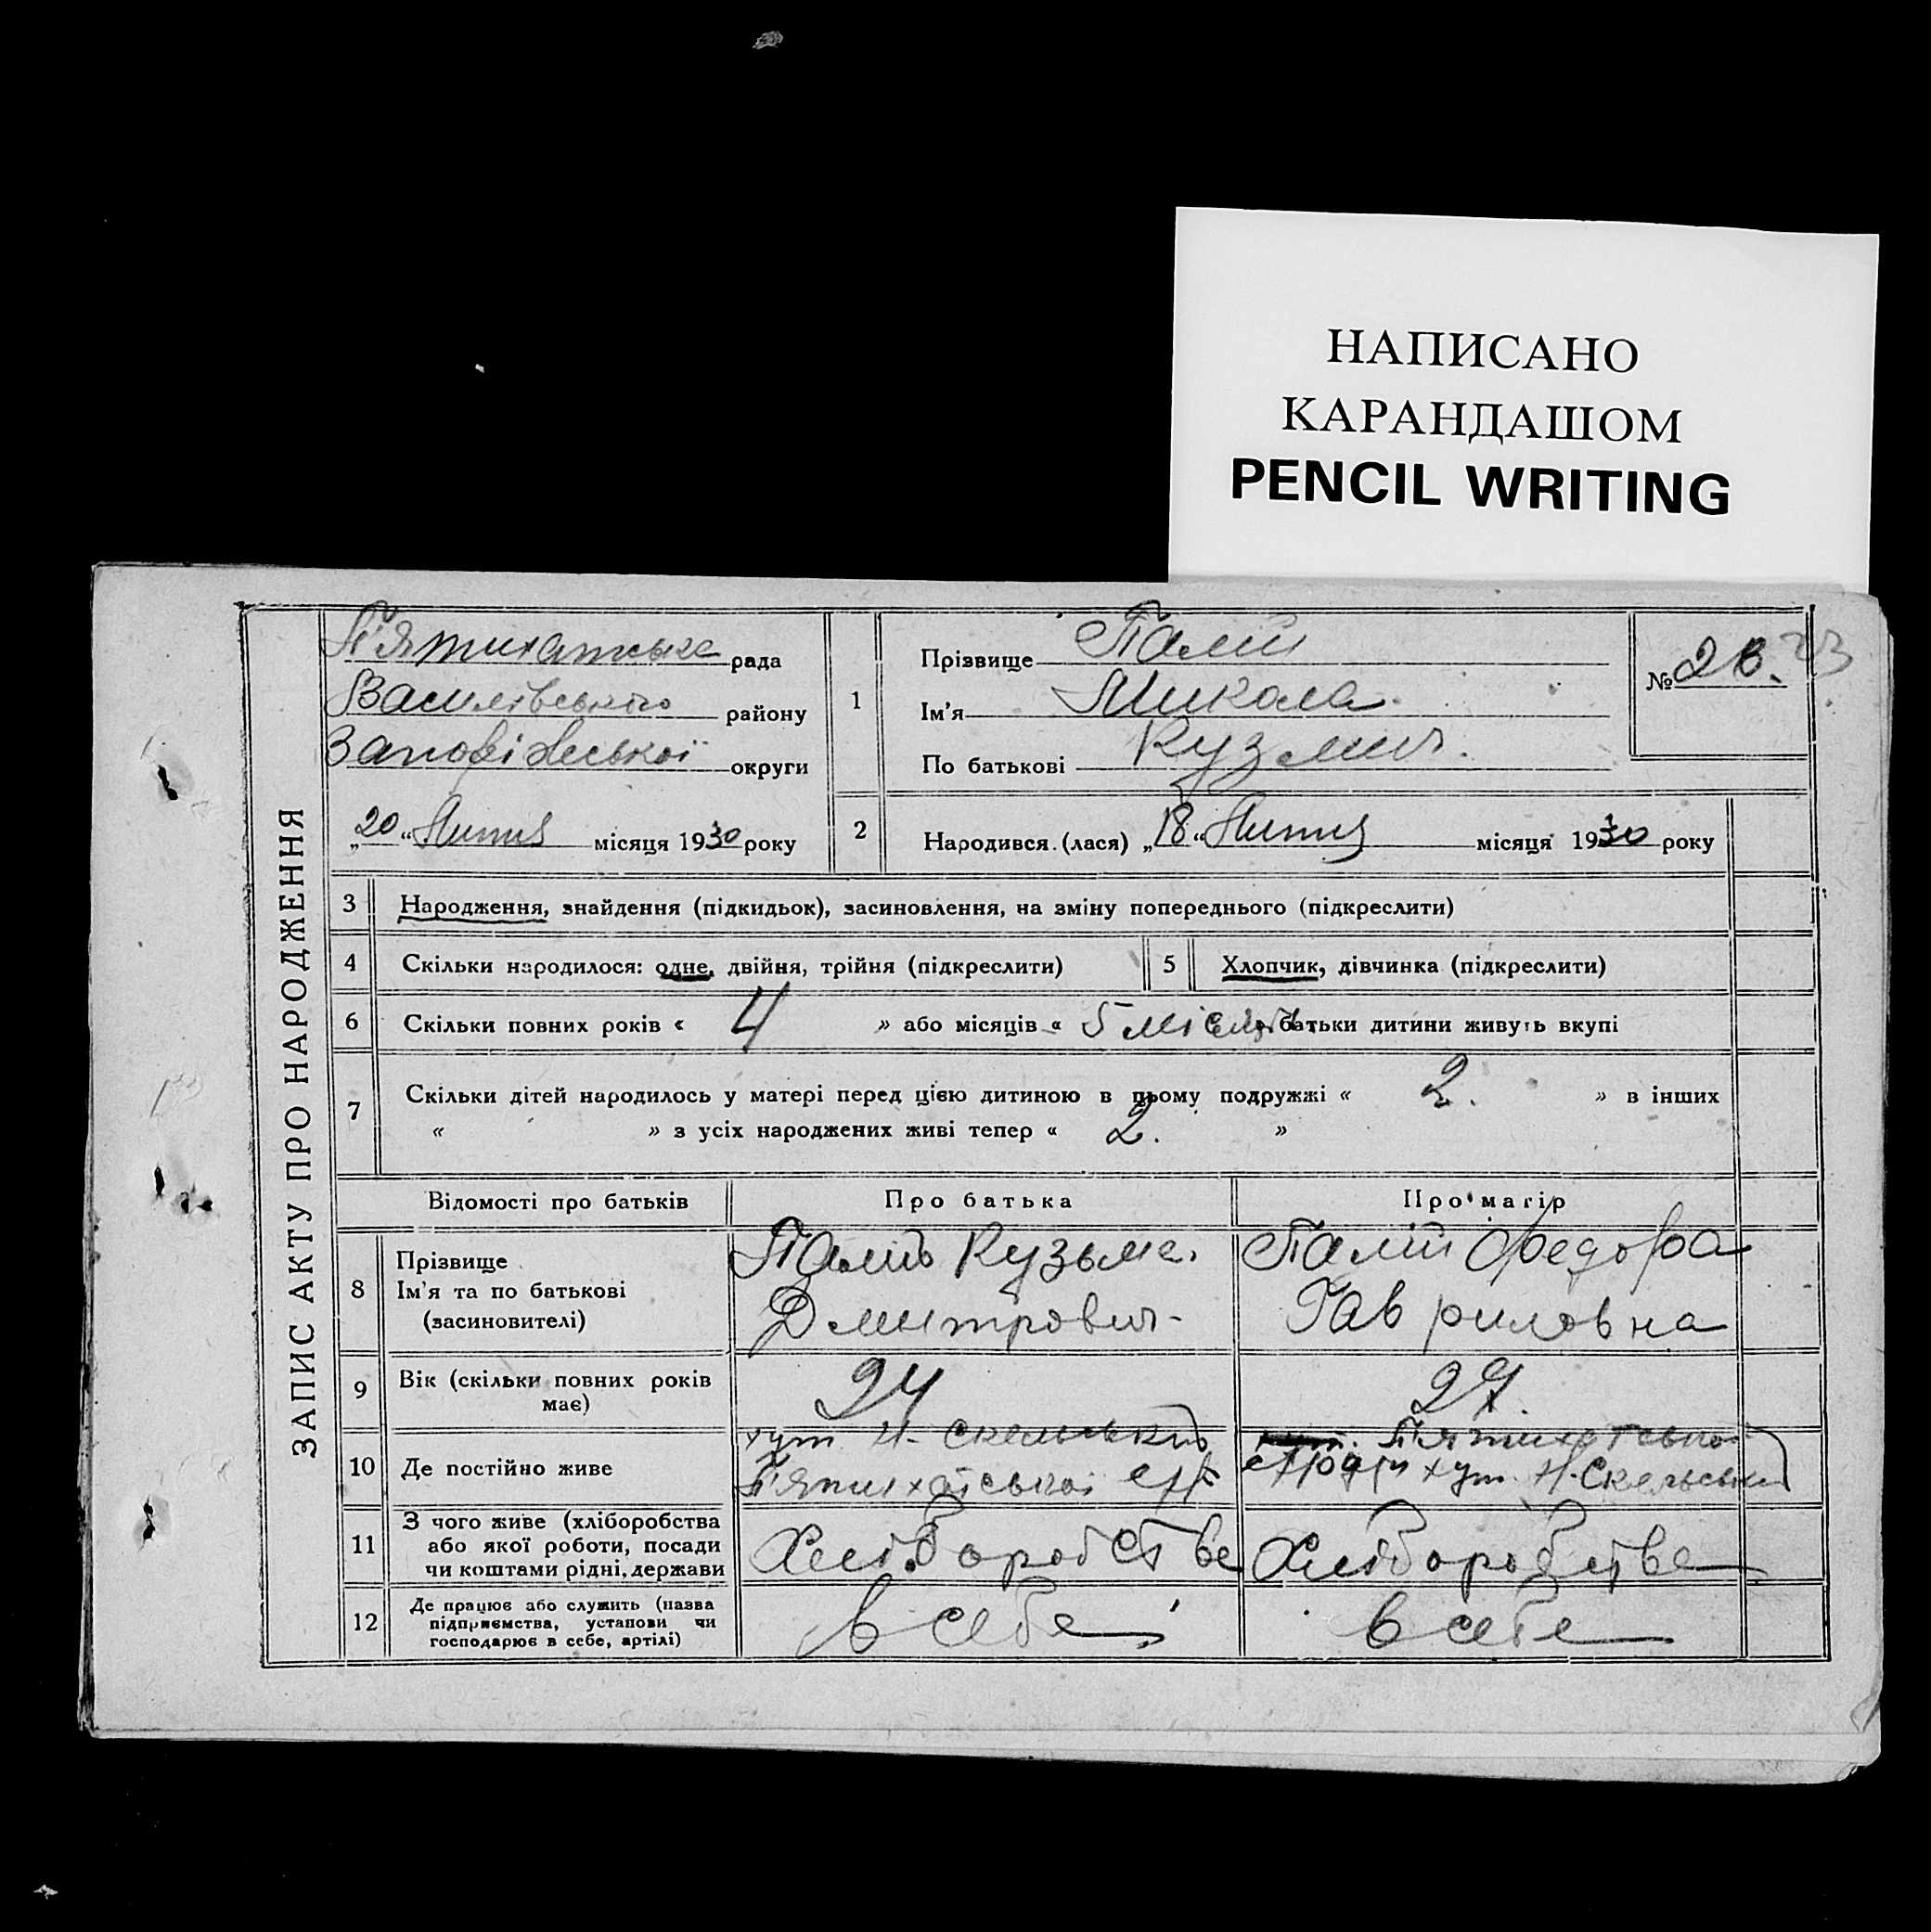 НАПИСАНО
КАРАНДАШОМ
PENCIL WRITING
ЗАПИС АКТУ ПРО НАРОДЖЕННЯ
П'ятихатська рада
Василівського району
Запоріжської округи
„20“ Липня місяця 1930 року
1
Прізвище Палій
Ім'я Микола
По батькові Кузмич.
№ 23. 23
2
Народився (лася) „18“ Липня місяця 1930 року
3 Народження, знайдення (підкидьок), засиновлення, на зміну попереднього (підкреслити)
4 Скільки народилося: одне, двійня, трійня (підкреслити)
5 Хлопчик, дівчинка (підкреслити)
6 Скільки повних років « 4 » або місяців « 5 місяців батьки дитини живуть вкупі
7 Скільки дітей народилось у матері перед цією дитиною в цьому подружжі « 2. » в інших
« » з усіх народжених живі тепер « 2. »
Відомості про батьків
Про батька
Про матір
8
Прізвище
Ім'я та по батькові
(засиновителі)
Палій Кузьма.
Дмитрович
Палій Федора
Гавриловна
9
Вік (скільки повних років
має)
24
27.
10 Де постійно живе
хут. Н. Скельський
П'ятихатської с/р
П'ятихатської
с/ради хут. Н. Скельський
11
З чого живе (хліборобства
або якої роботи, посади
чи коштами рідні, держави
Хліборобства
Хліборобства
12
Де працює або служить (назва
підприємства, установи чи
господарює в себе, артілі)
в себе
в себе